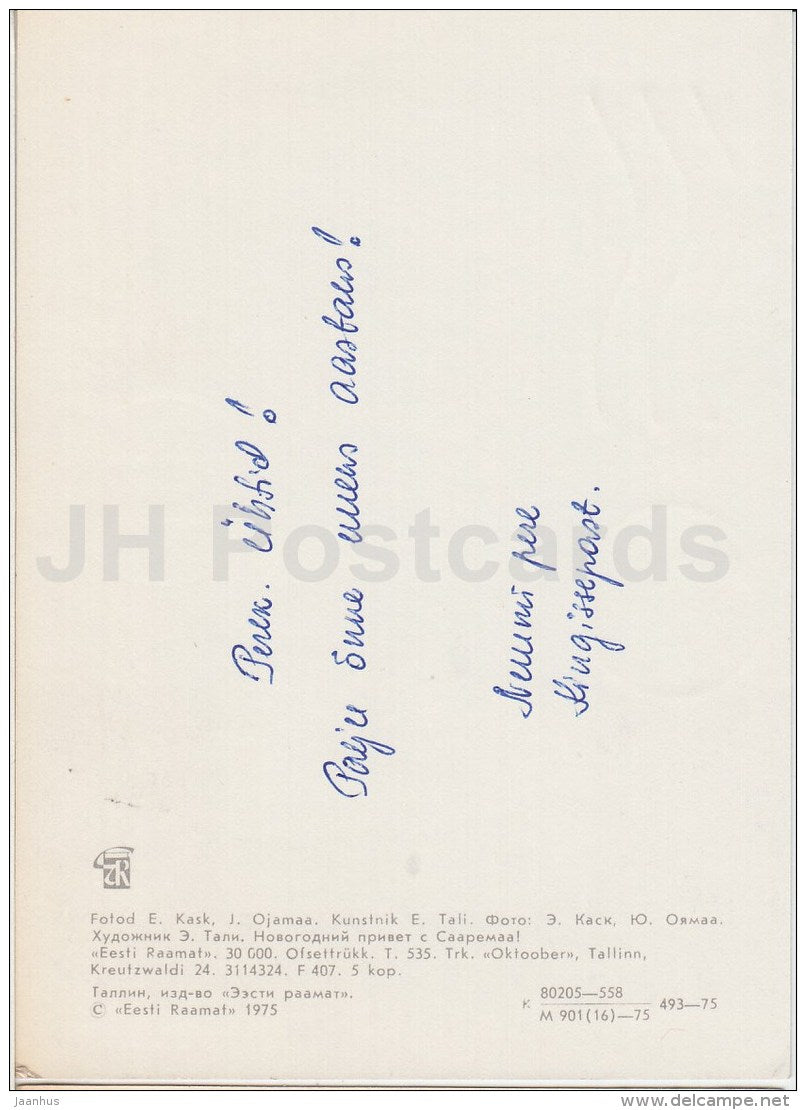 Perek. Ühtid!
Palju õnne uueks aastaks!
Nurmi pere
Kingissepast.
JH Postcards
Fotod E. Kask, J. Ojamaa. Kunstnik E. Tali. Фото: Э. Каск, Ю. Оямаа.
Художник Э. Тали. Новогодний привет с Сааремаа!
«Eesti Raamat». 30 000. Ofsettrükk. T. 535. Trk. «Oktoober», Tallinn,
Kreutzwaldi 24. 3114324. F 407. 5 kop.
Таллин, изд-во «Ээсти раамат».
© «Eesti Raamat» 1975
К 80205—558
М 901(16)—75 493—75
jaanhus
www.delcampe.net